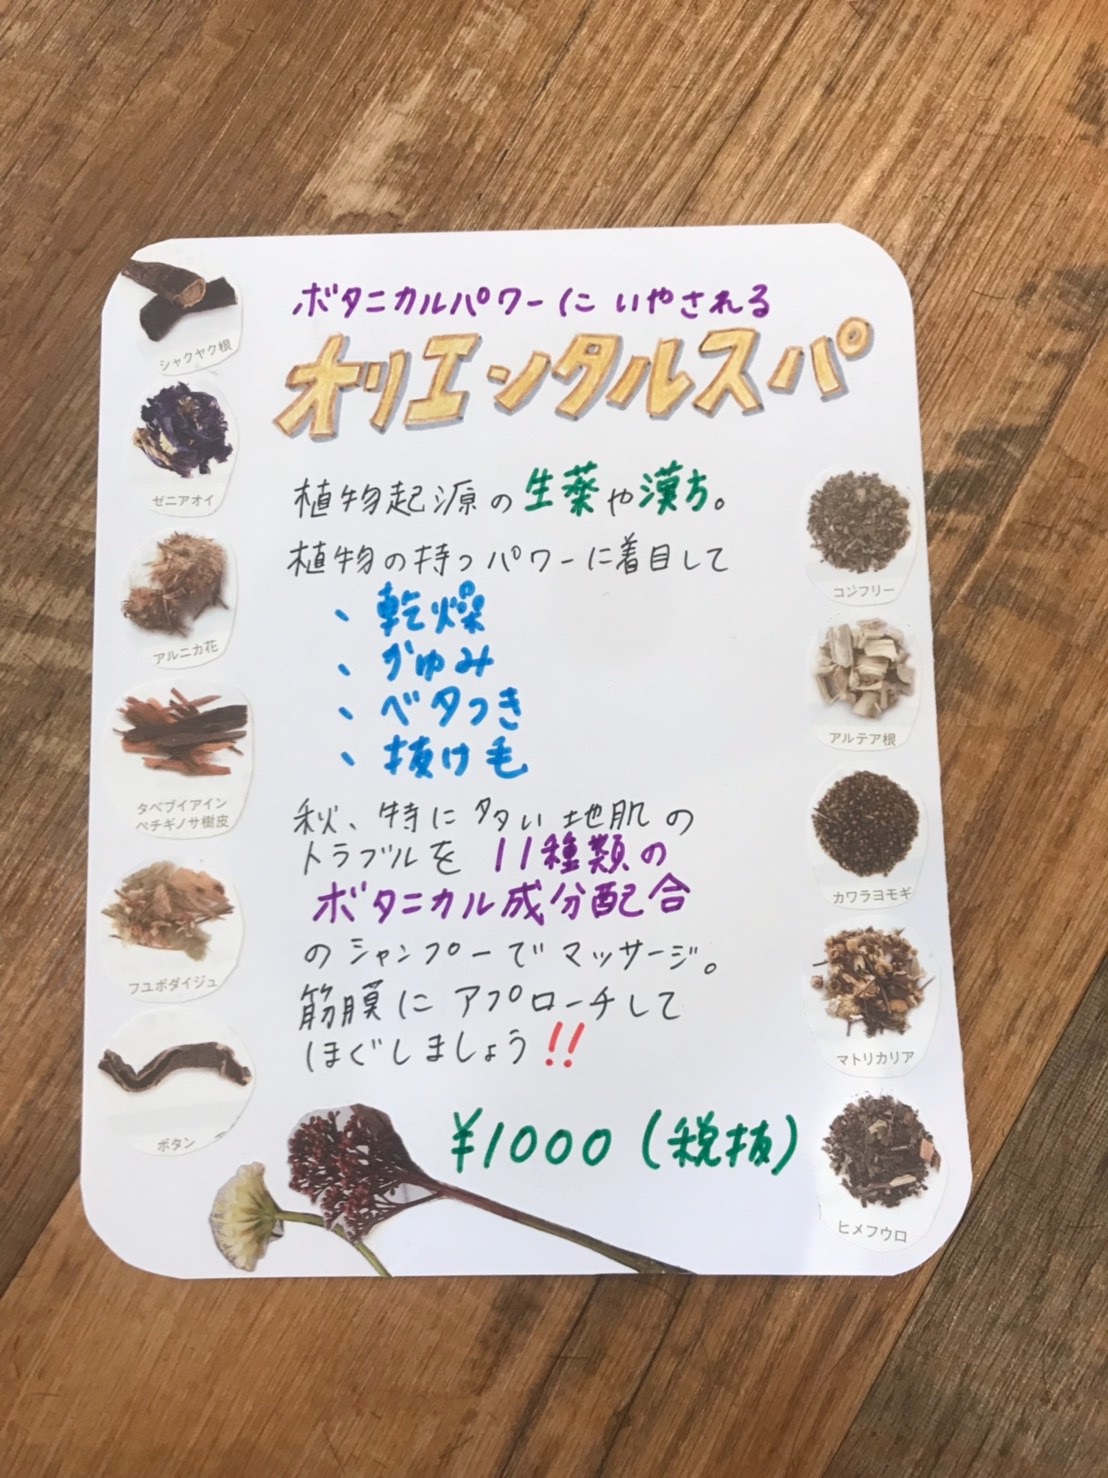 ボタニカルパワーにいやされる
オリエンタルスパ
植物起源の生薬や漢方。
植物の持つパワーに着目して
、乾燥
、かゆみ
、ベタつき
、抜け毛
秋、特に多い地肌の
トラブルを11種類の
ボタニカル成分配合
のシャンプーでマッサージ。
筋膜にアプローチして
ほぐしましょう!!
¥1000(税抜)
シャクヤク根
ゼニアオイ
アルニカ花
タベブイアイン
ペチギノサ樹皮
フユボダイジュ
ボタン
コンフリー
アルテア根
カワラヨモギ
マトリカリア
ヒメフウロ